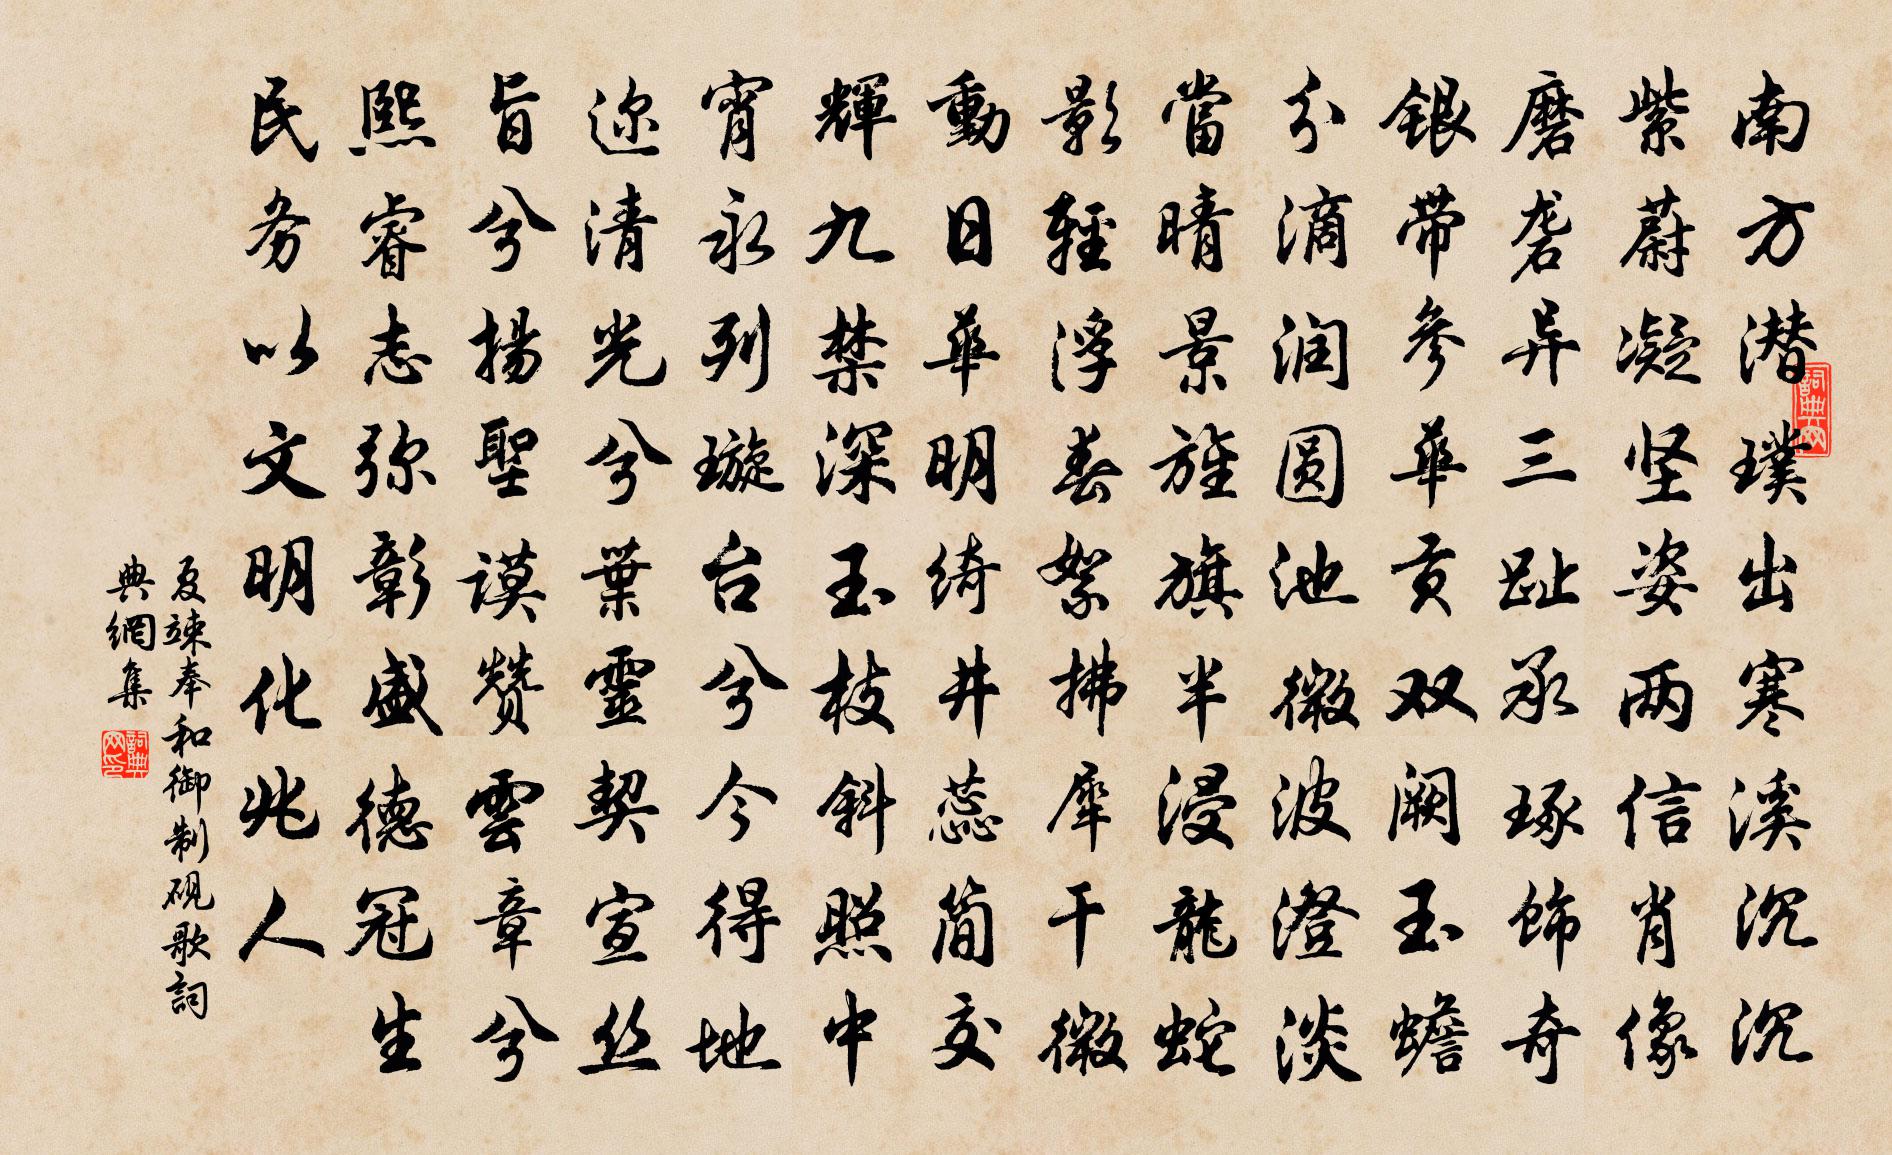 南方潜璞出寒溪沉沉
紫蔚凝坚姿两信肖像
磨砻异三趾承琢饰奇
银带参华贡双阙玉蟾
分滴润圆池微波澄淡
當晴景旌旗半浸龍蛇
影輕浮春絮拂犀干微
動日華明绮井蕊简交
輝九禁深玉枝斜照中
宵永列璇台兮今得地
迩清光兮葉靈契宣丝
旨兮揚聖谟赞雲章兮
熙睿志弥彰盛德冠生
民务以文明化兆人
夏竦奉和御制砚歌詞
典網集
詞典网
詞典网印